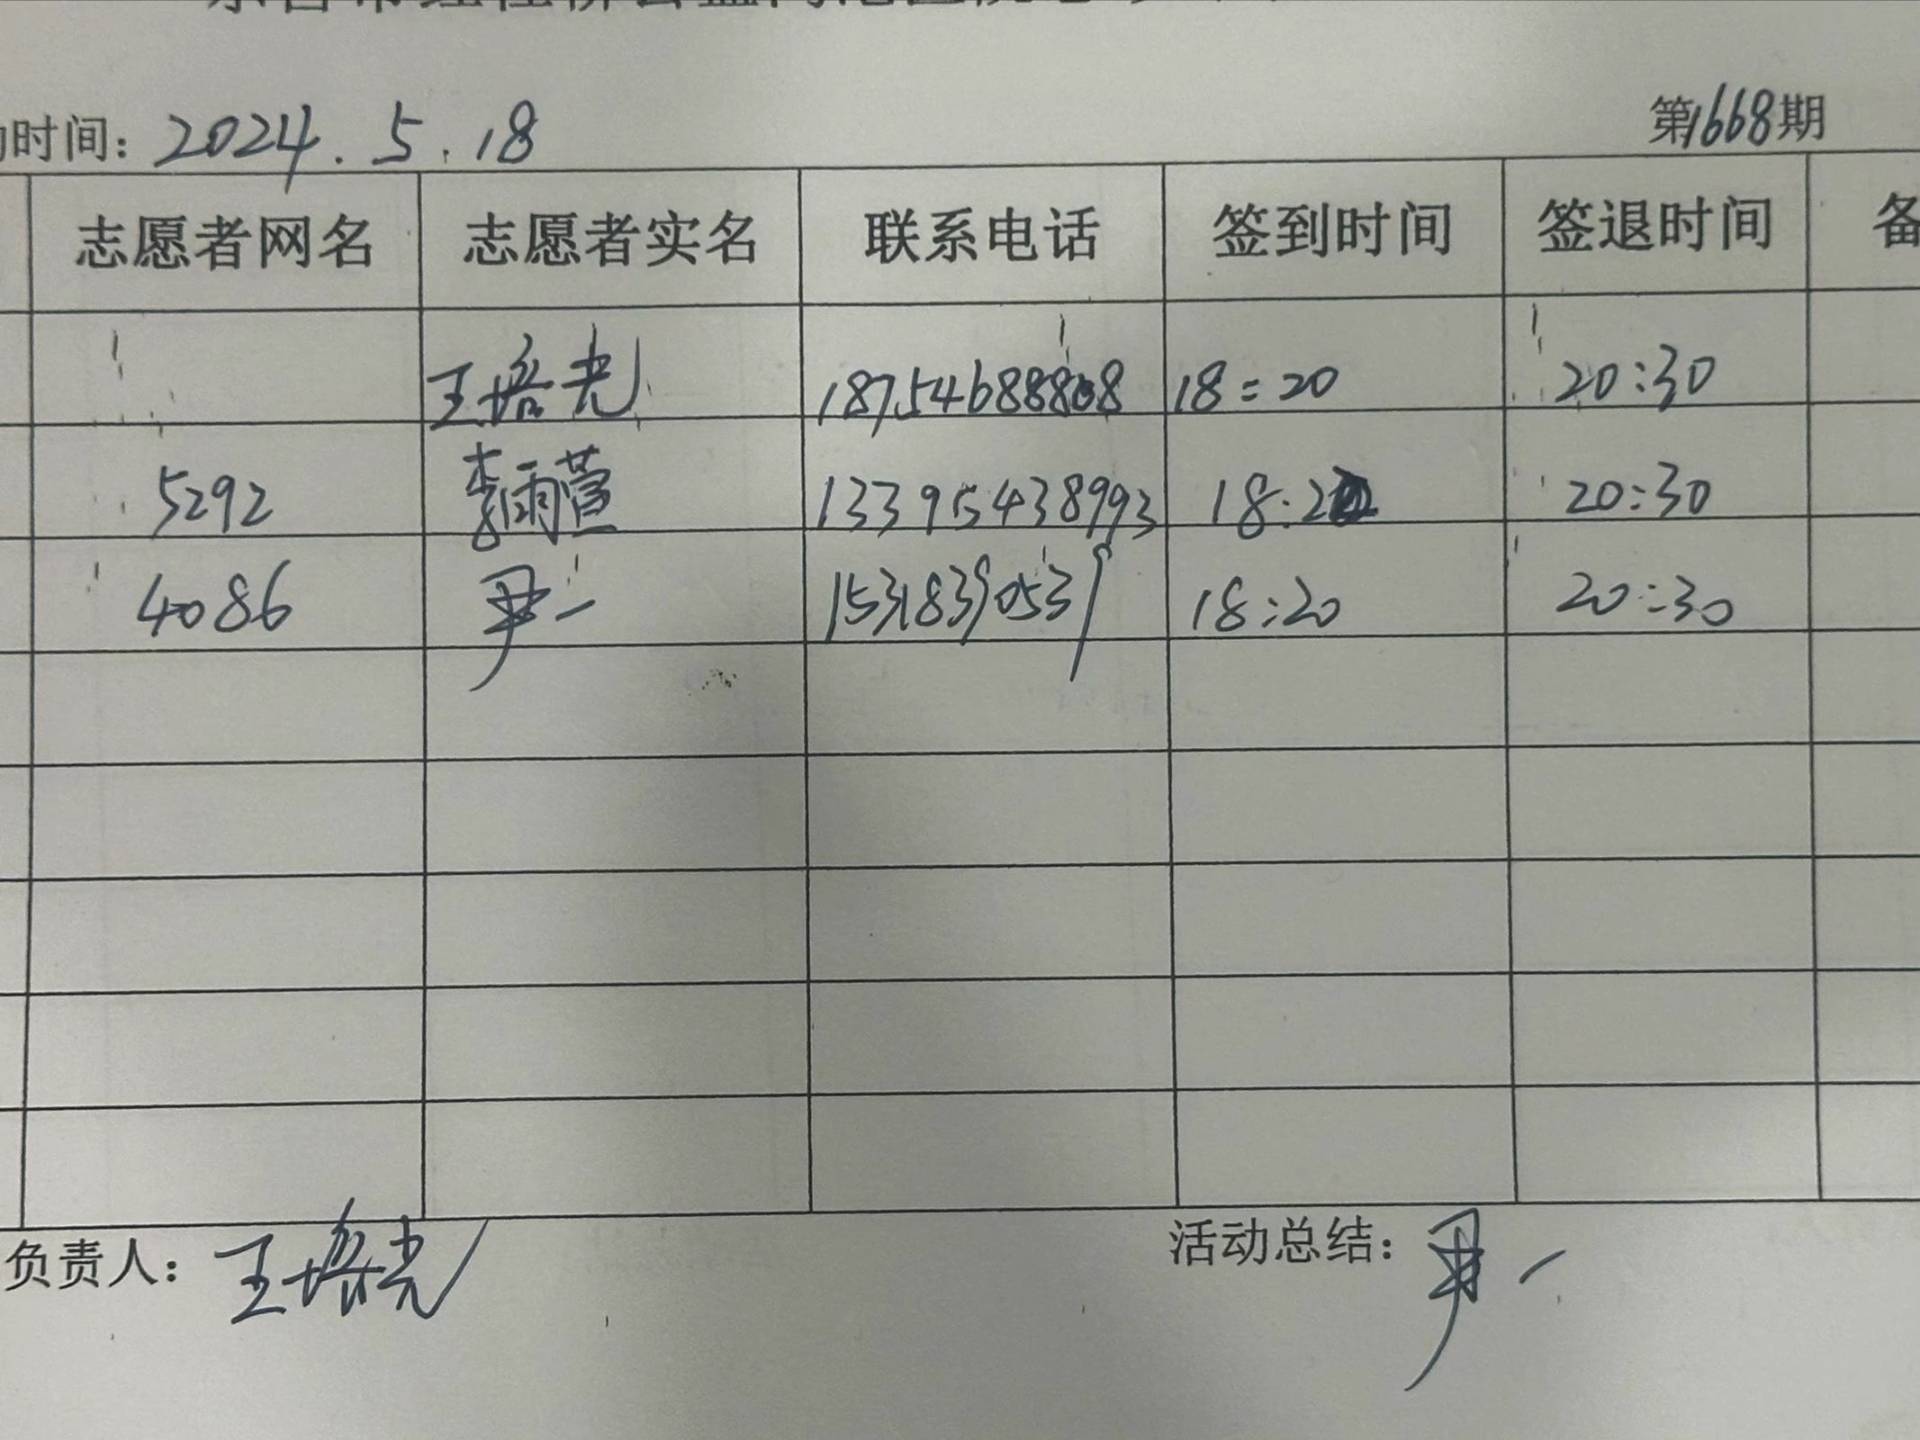 动时间：2024.5.18 第1668期
志愿者网名 志愿者实名 联系电话 签到时间 签退时间 备
王培光 18754688808 18:20 20:30
5292 李雨萱 13395438993 18:20 20:30
4086 尹一 15318390539 18:20 20:30
负责人：王培光 活动总结：尹一